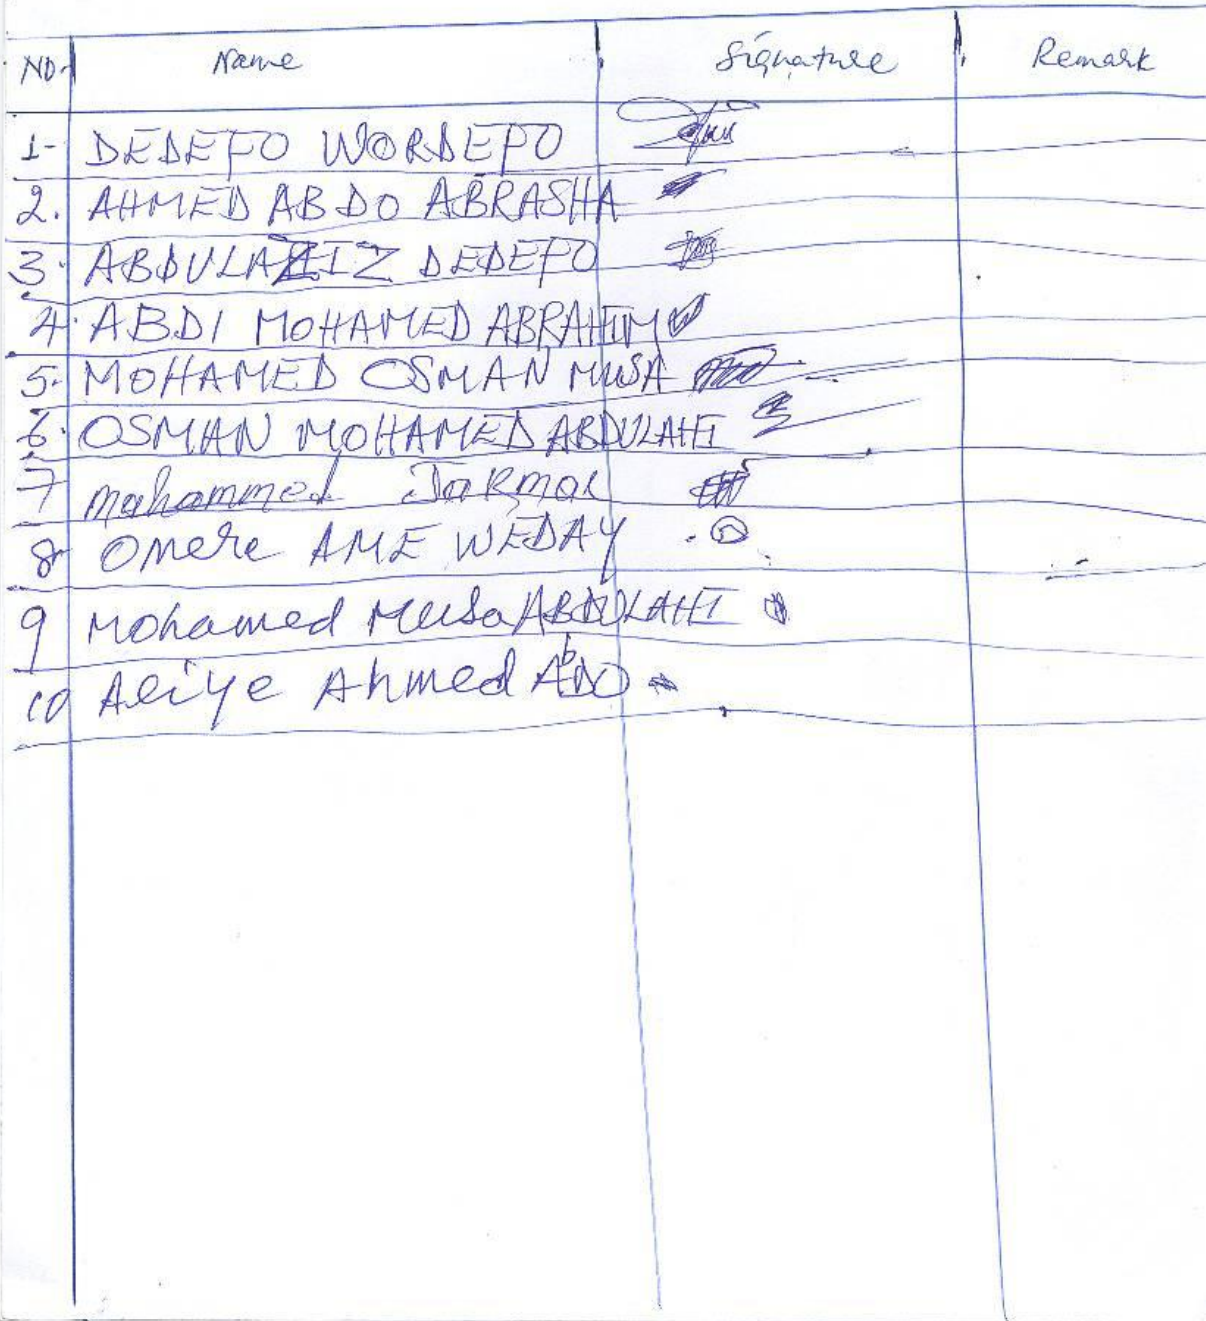 NO. Name Signature Remark
1- DEDEFO WORDEFO
2. AHMED ABDO ABRASHA
3. ABDULAZIZ DEDEFO
4. ABDI MOHAMED ABRAHIM
5. MOHAMED OSMAN MUSA
6. OSMAN MOHAMED ABDULAHI
7 Mahammed
8 Omere AME WEDAY
9 Mohamed Musa ABDULAHI
10 Aliye Ahmed AbDO